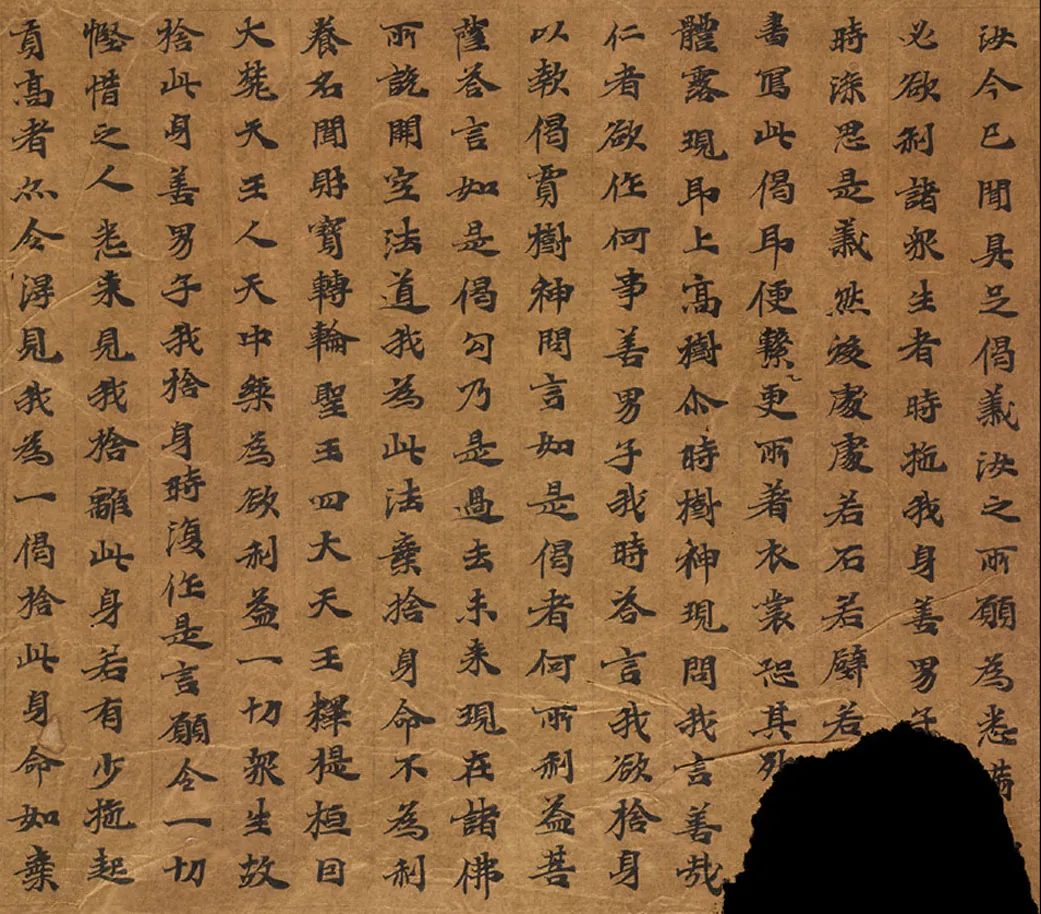 汝今已聞具足偈義汝之所願為悉
必欲利諸眾生者時施我身善男子
時深思是義然後處處若石若壁若
書寫此偈即便繫更所著衣裳恐其
體露現即上高樹尒時樹神現問我言善哉
仁者欲作何事善男子我時答言我欲捨身
以報偈賈樹神問言如是偈者何所利益菩
薩答言如是偈句乃是過去未來現在諸佛
所說開空法道我為此法棄捨身命不為利
養名聞財寶轉輪聖王四大天王釋提桓因
大梵天王人天中樂為欲利益一切眾生故
捨此身善男子我捨身時復作是言願令一切
慳惜之人悉來見我捨離此身若有少施起
貢高者亦令得見我為一偈捨此身命如棄